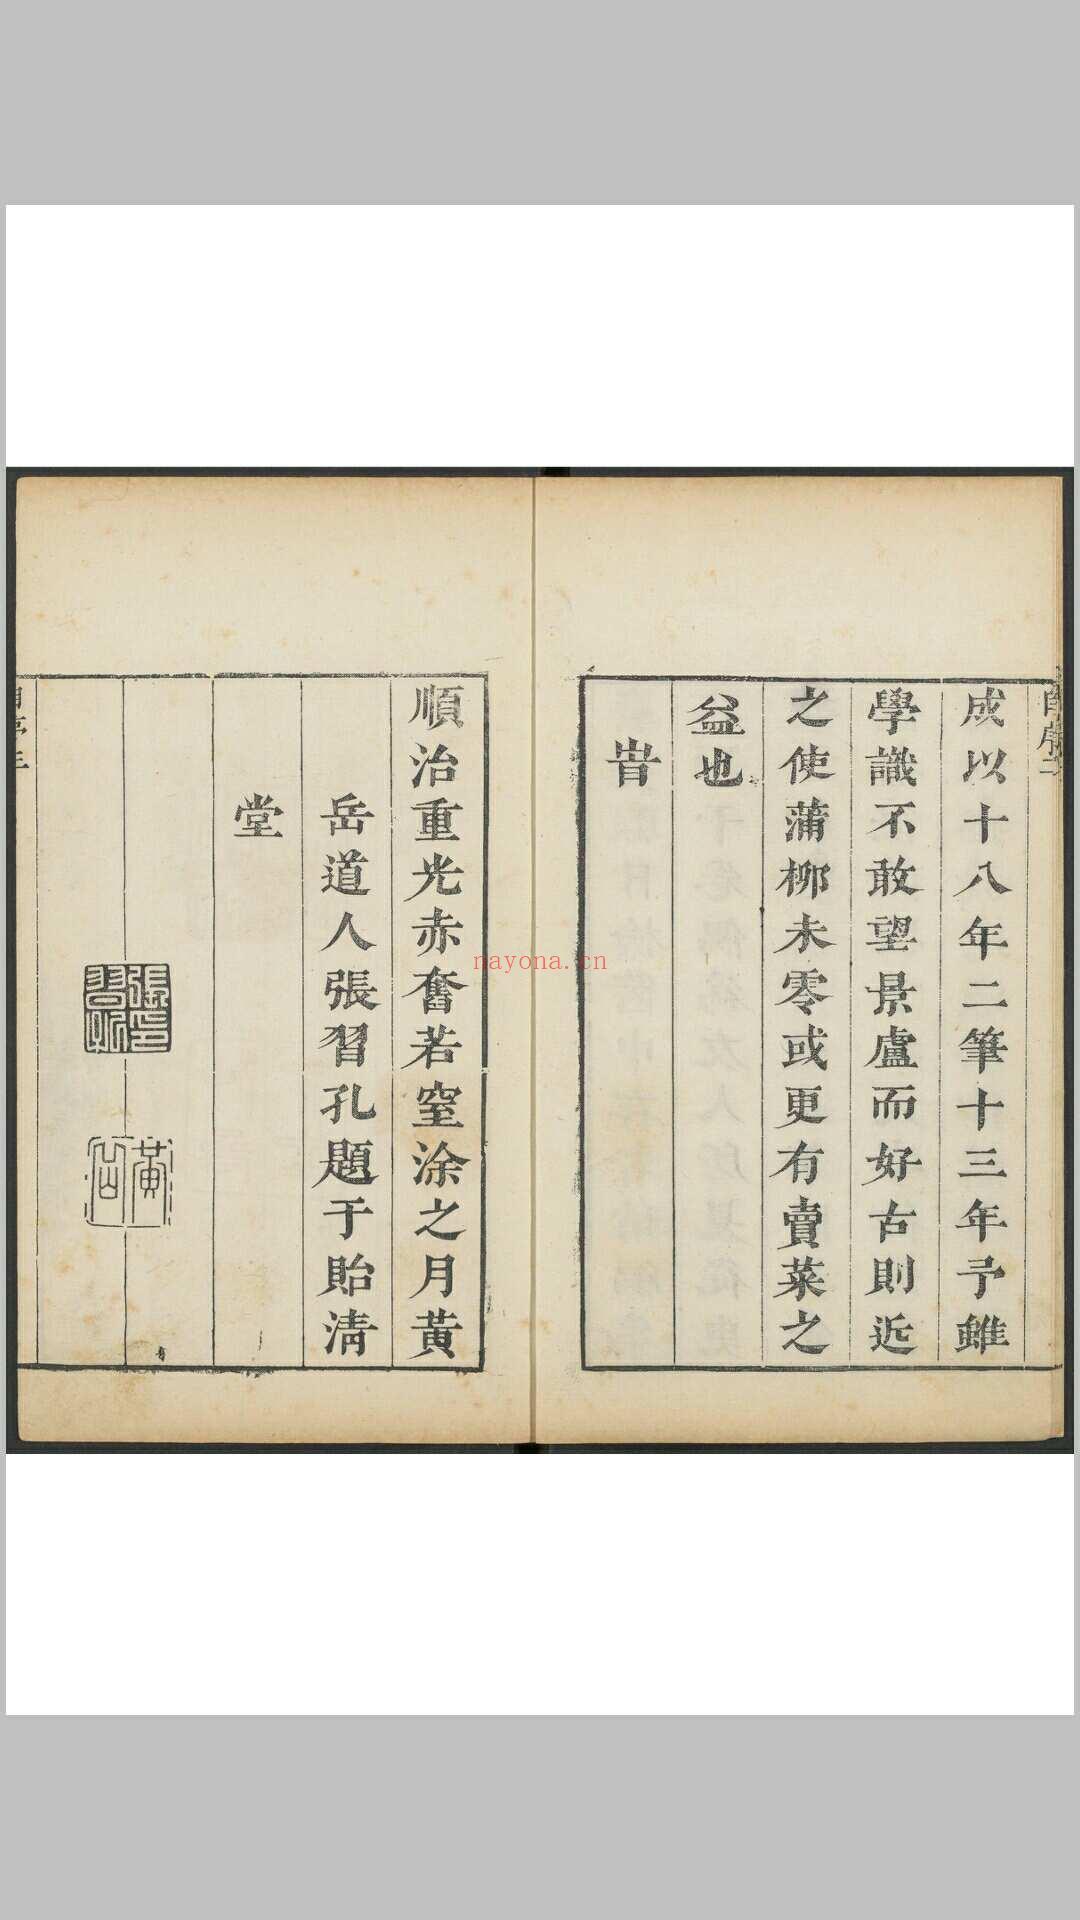 自序二
成以十八年二筆十三年予雖
學識不敢望景盧而好古則近
之使蒲栁未零或更有賣菜之
益也
旹
順治重光赤奮若窒涂之月黃
岳道人張習孔題于貽清
堂
nayona.cn